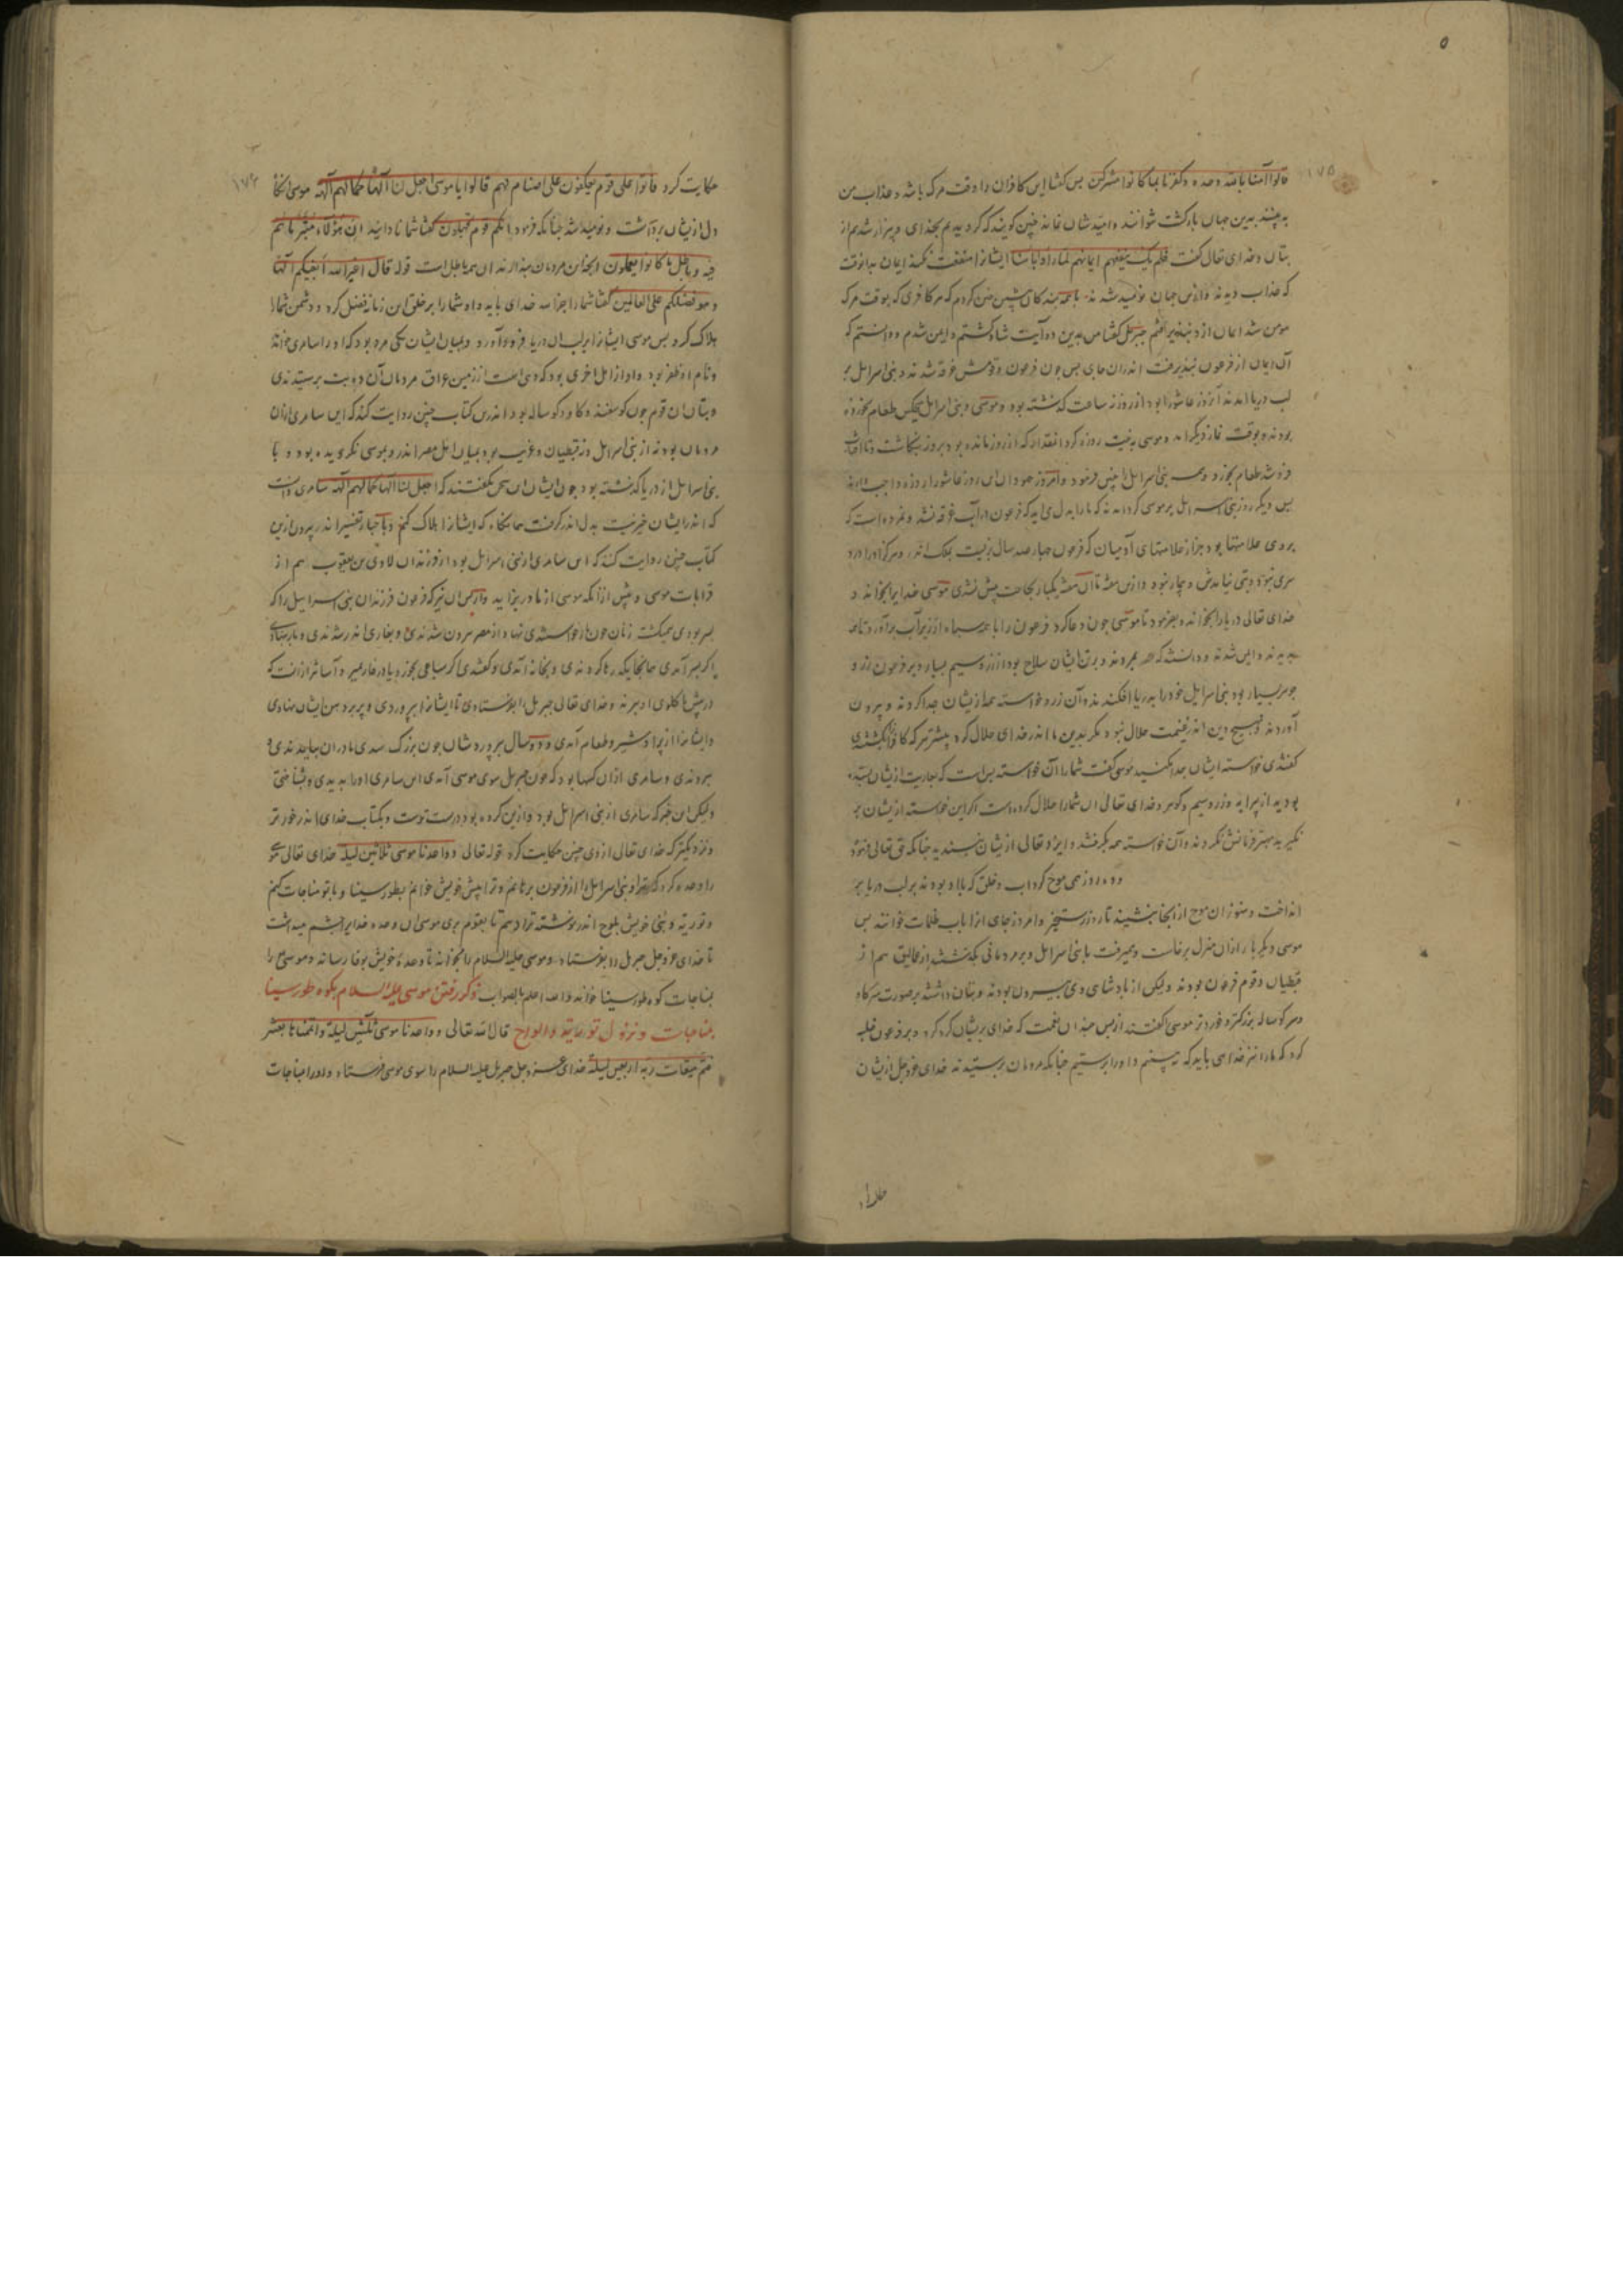 ۵
۱۷۵
قالوا آمنا بالله وحده وکفرنا بما کنا به مشرکین پس کشتا این کافران را وقت مرک باشد وعذاب من
به بینند بدین جهان بازکشت نتوانند وامیدشان نماند چنین کویند که کرویدیم بخدای وبیزار شدیم از
بتان وخدای تعالی کفت فلم یک ینفعهم ایمانهم لما راوا باسنا ایشانرا منفعت نکند ایمان بدانوقت
که عذاب دیدند وازین جهان نومید شدند با همه بندکان پیشین چنین کردم که هر کافری که بوقت مرک
مومن شد ایمان ازو نپذیرفتم جبریل کفتا من بدین دو آیت شاد کشتم وایمن شدم ودانستم که
آن ایمان از فرعون نپذیرفت اندران جای پس چون فرعون وقومش غرقه شدند وبنی اسرایل بر
لب دریا آمدند آنروز عاشورا بود از روز نه ساعت کذشته بود وموسی وبنی اسرایل هیچکس طعام نخورده
بودند وبوقت نماز دیکر آمد وموسی به نیت روزه کرد انقدار که از روز مانده بود وبروز نکاشت وتا آفتاب
فرو شد طعام نخورد وهمه بنی اسرایل را چنین فرمود وامروز جهودان این روز عاشورا روزه واجب دارند
پس دیکر روز بنی اسرایل بر موسی کرد آمدند که ما را به دل می آید که فرعون در آب غرقه نشد ونمرده است که
بروی علامتها بود جز از علامتهای آدمیان که فرعون چهارصد سال بزیست بملک اندر وهرکز اورا درد
سری نبود وتبی نیامدش وبیمار نبود وازین هفته تا آن هفته یکبار بحاجت پیش نشدی موسی خدایرا بخواند و
خدای تعالی دریا را بخواند وبفرمود تا موسی چون دعا کرد فرعون را با همه سپاه از زیر آب برآورد تا همه
بدیدند وایمن شدند ودانستند که همه بمردند وبر تن ایشان سلاح بود از زر وسیم بسیار وبر فرعون زر و
جوهر بسیار بود بنی اسرایل خود را بدریا افکندند وآن زر وخواسته همه ازیشان جدا کردند وبیرون
آوردند وهیچ دین اندر غنیمت حلال نبود مکر بدین ما اندر خدای حلال کرد وپیشتر هر که کافر بکشتندی
کفتندی خواسته ایشان جدا نکنید موسی کفت شما را آن خواسته بس است که بعاریت ازیشان بستده
بودید از پیرایه وزر وسیم وکوهر وخدای تعالی آن شما را حلال کرده است اکر این خواسته ازیشان بر
نکیرید بهتر فرمانش نکردند وآن خواسته همه بکرفتند وایزد تعالی ازیشان نپسندید چنانکه حق تعالی فرمود
وده روز همی موج کرد آب وخلق که بالا بودند بر لب دریا بر
انداخت وهنوز آن موج از آنجا ننشیند تا روز رستخیز وامروز جای انرا باب ظلمات خوانند پس
موسی دیکر بار از آن منزل برخاست وهمیرفت با بنی اسرایل وبر مردمانی بکذشتند از عمالیق هم از
قبطیان وقوم فرعون بودند ولیکن از پادشاهی وی بیرون بودند وبتان داشتند بر صورت سر کاو
وسر کوساله بزرکتر وخردتر موسی را کفتند از پس چندان نعمت که خدای بریشان کرد کرد وبر فرعون غلبه
کرد که ما را نیز خدایی باید که به بینیم واورا پرستیم چنانکه مردمان پرستیدند خدای عز وجل ازیشان
حکایت کرد فاتوا علی قوم یعکفون علی اصنام لهم قالوا یا موسی اجعل لنا الها کما لهم آلهة موسی آنجا
دل ازیشان برداشت ونومید شد چنانکه فرمود انکم قوم تجهلون کفتا شما نادانید ان هؤلاء متبر ما هم
فیه وباطل ما کانوا یعملون آنچه این مردمان میدارند آن همه باطل است قوله قال اغیر الله ابغیکم الها
وهو فضلکم علی العالمین کفتا شما را جز الله خدای باید واو شما را بر خلق این زمانه فضل کرد ودشمن شما را
هلاک کرد پس موسی ایشانرا بر لب آن دریا فرود آورد ومیان ایشان یکی مرد بود که اورا سامری خواند
ونام او ظفر بود واو از اهل باجرمی بود که دهی است از زمین عراق مردمان آن ده بت پرستیدندی
وبتان آن قوم چون کوسفند وکاو وکوساله بود اندرین کتاب چنین روایت کند که این سامری از آن
مردمان بود نه از بنی اسرایل ونه قبطیان وغریب بود بمیان اهل مصر اندر وبموسی نکرویده بود وبا
بنی اسرایل از دریا کذشته بود چون ایشان این سخن بکفتند که اجعل لنا الها کما لهم آلهة سامری دانست
که اندر ایشان خیر نیست بدل اندر کرفت همانکاه که ایشانرا هلاک کنم وبا خبار تفسیر اندر بیرون ازین
کتاب چنین روایت کنند که این سامری از بنی اسرایل بود از فرزندان لاوی بن یعقوب هم از
قرابات موسی وپیش از آنکه موسی از مادر بزاید واز پس آن نیز که فرعون فرزندان بنی اسراییل را که
پسر بودی همیکشت زنان چون زه خواستندی نهادن از مصر بیرون شدندی وبغاری اندر شدندی وبار بنهادندی
اکر پسر آمدی همانجا یکه رها کردندی وبخانه آمدی وکفتندی اکر سباعی بخورد یا در غار بمیرد آسانتر از آنست که
در پیش ما کلوی او ببرند وخدای تعالی جبریل را بفرستادی تا ایشانرا بپروردی وپر برد هن ایشان بنهادی
وایشانرا از پر او شیر وطعام آمدی ودو سال بپروردشان چون بزرک شدندی مادران بیامدندی و
ببردندی وسامری از آن کسها بود که چون جبریل سوی موسی آمدی این سامری اورا بدیدی وبشناختی
ولیکن این خبر که سامری از بنی اسرایل بود وازین کروه بود درست توست وبکتاب خدای اندر خورتر
ونزدیکتر که خدای تعالی از وی چنین حکایت کرد قوله تعالی وواعدنا موسی ثلاثین لیلة خدای تعالی موسی
را وعده کرد که ترا وبنی اسرایل را از فرعون برهانم وترا پیش خویش خوانم بطور سینا وبا تو مناجات کنم
وتوریة وپنج خویش بلوح اندر نوشته ترا دهم تا بقوم بری موسی آن وعده خدایرا چشم میداشت
تا خدای عز وجل جبریل را بفرستاد وموسی علیه السلام را بخواند تا وعده خویش بوفا رساند وموسی را
بمناجات کوه طور سینا خواند والله اعلم بالصواب ذکر رفتن موسی علیه السلام بکوه طور سینا
بمناجات ونزول توریة والواح قال الله تعالی وواعدنا موسی ثلثین لیلة واتممناها بعشر
فتم میقات ربه اربعین لیلة خدای عز وجل جبریل علیه السلام را سوی موسی فرستاد واورا مناجات